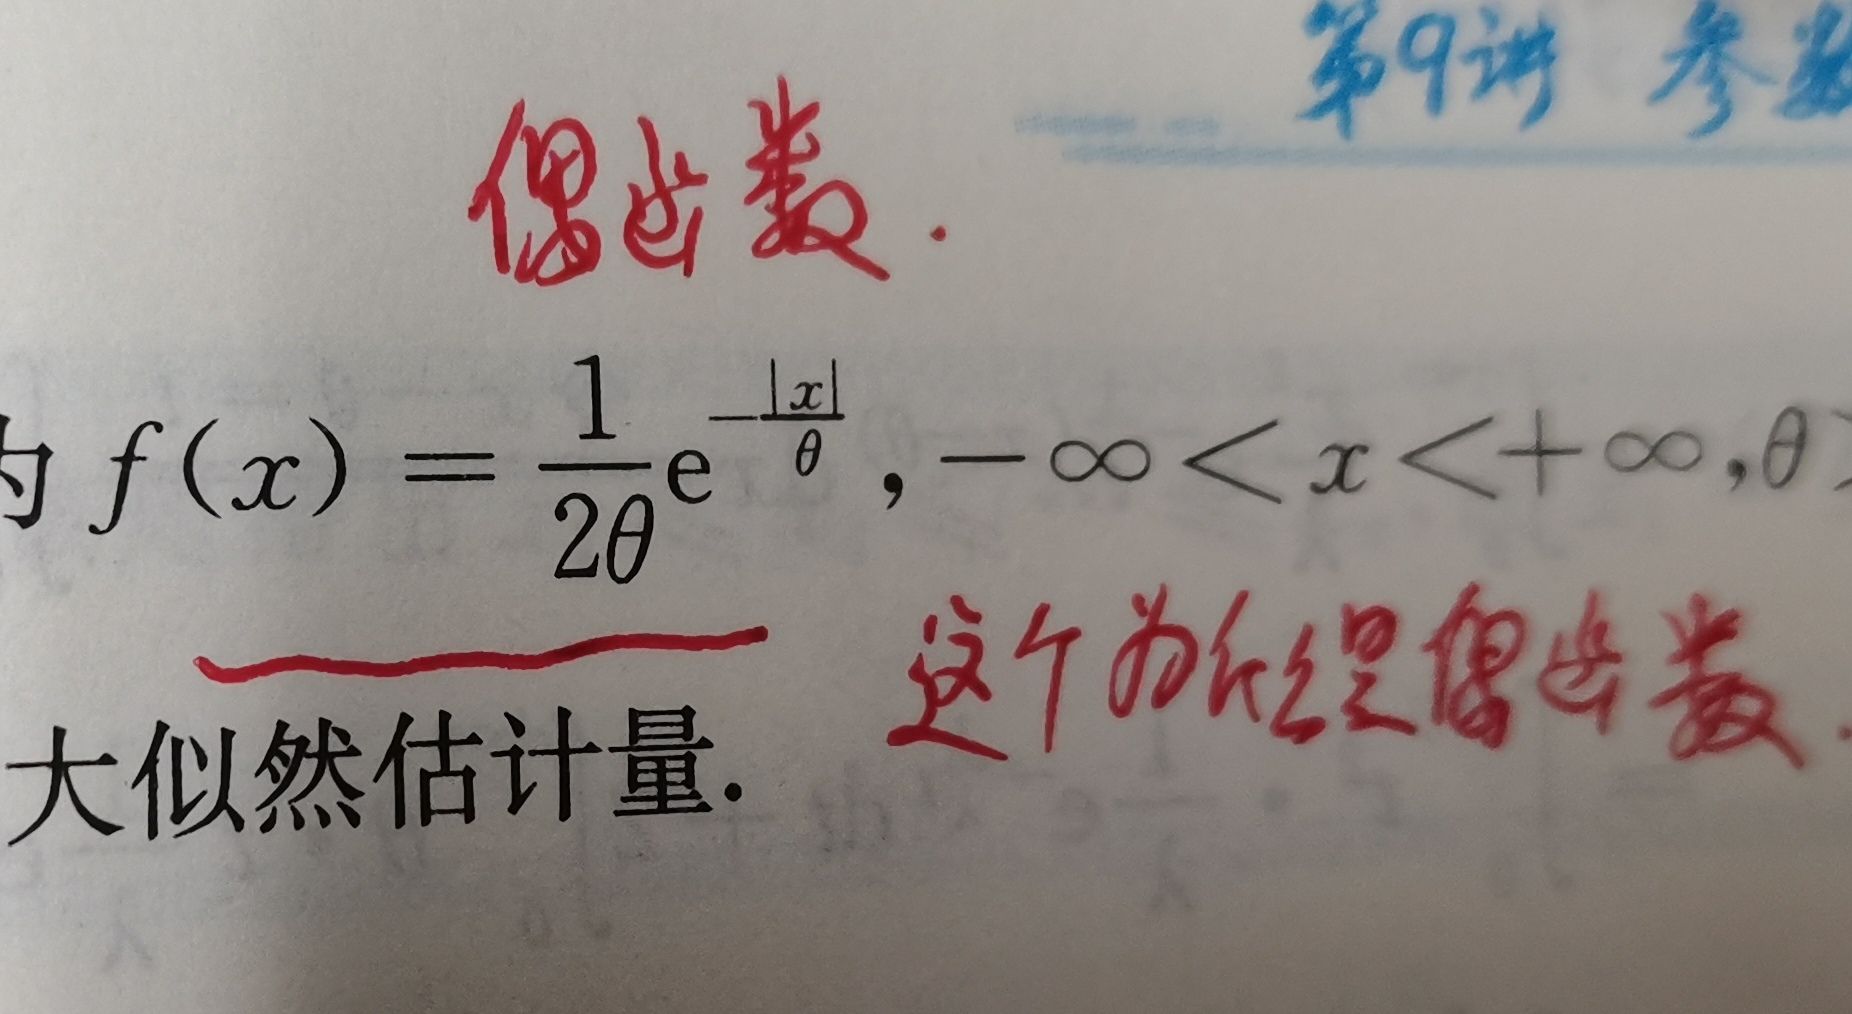 第9讲 参数
偶函数.
为 f(x) = \frac{1}{2θ}e^{-\frac{|x|}{θ}}, -∞ < x < +∞, θ>
这个为什么是偶函数.
大似然估计量.